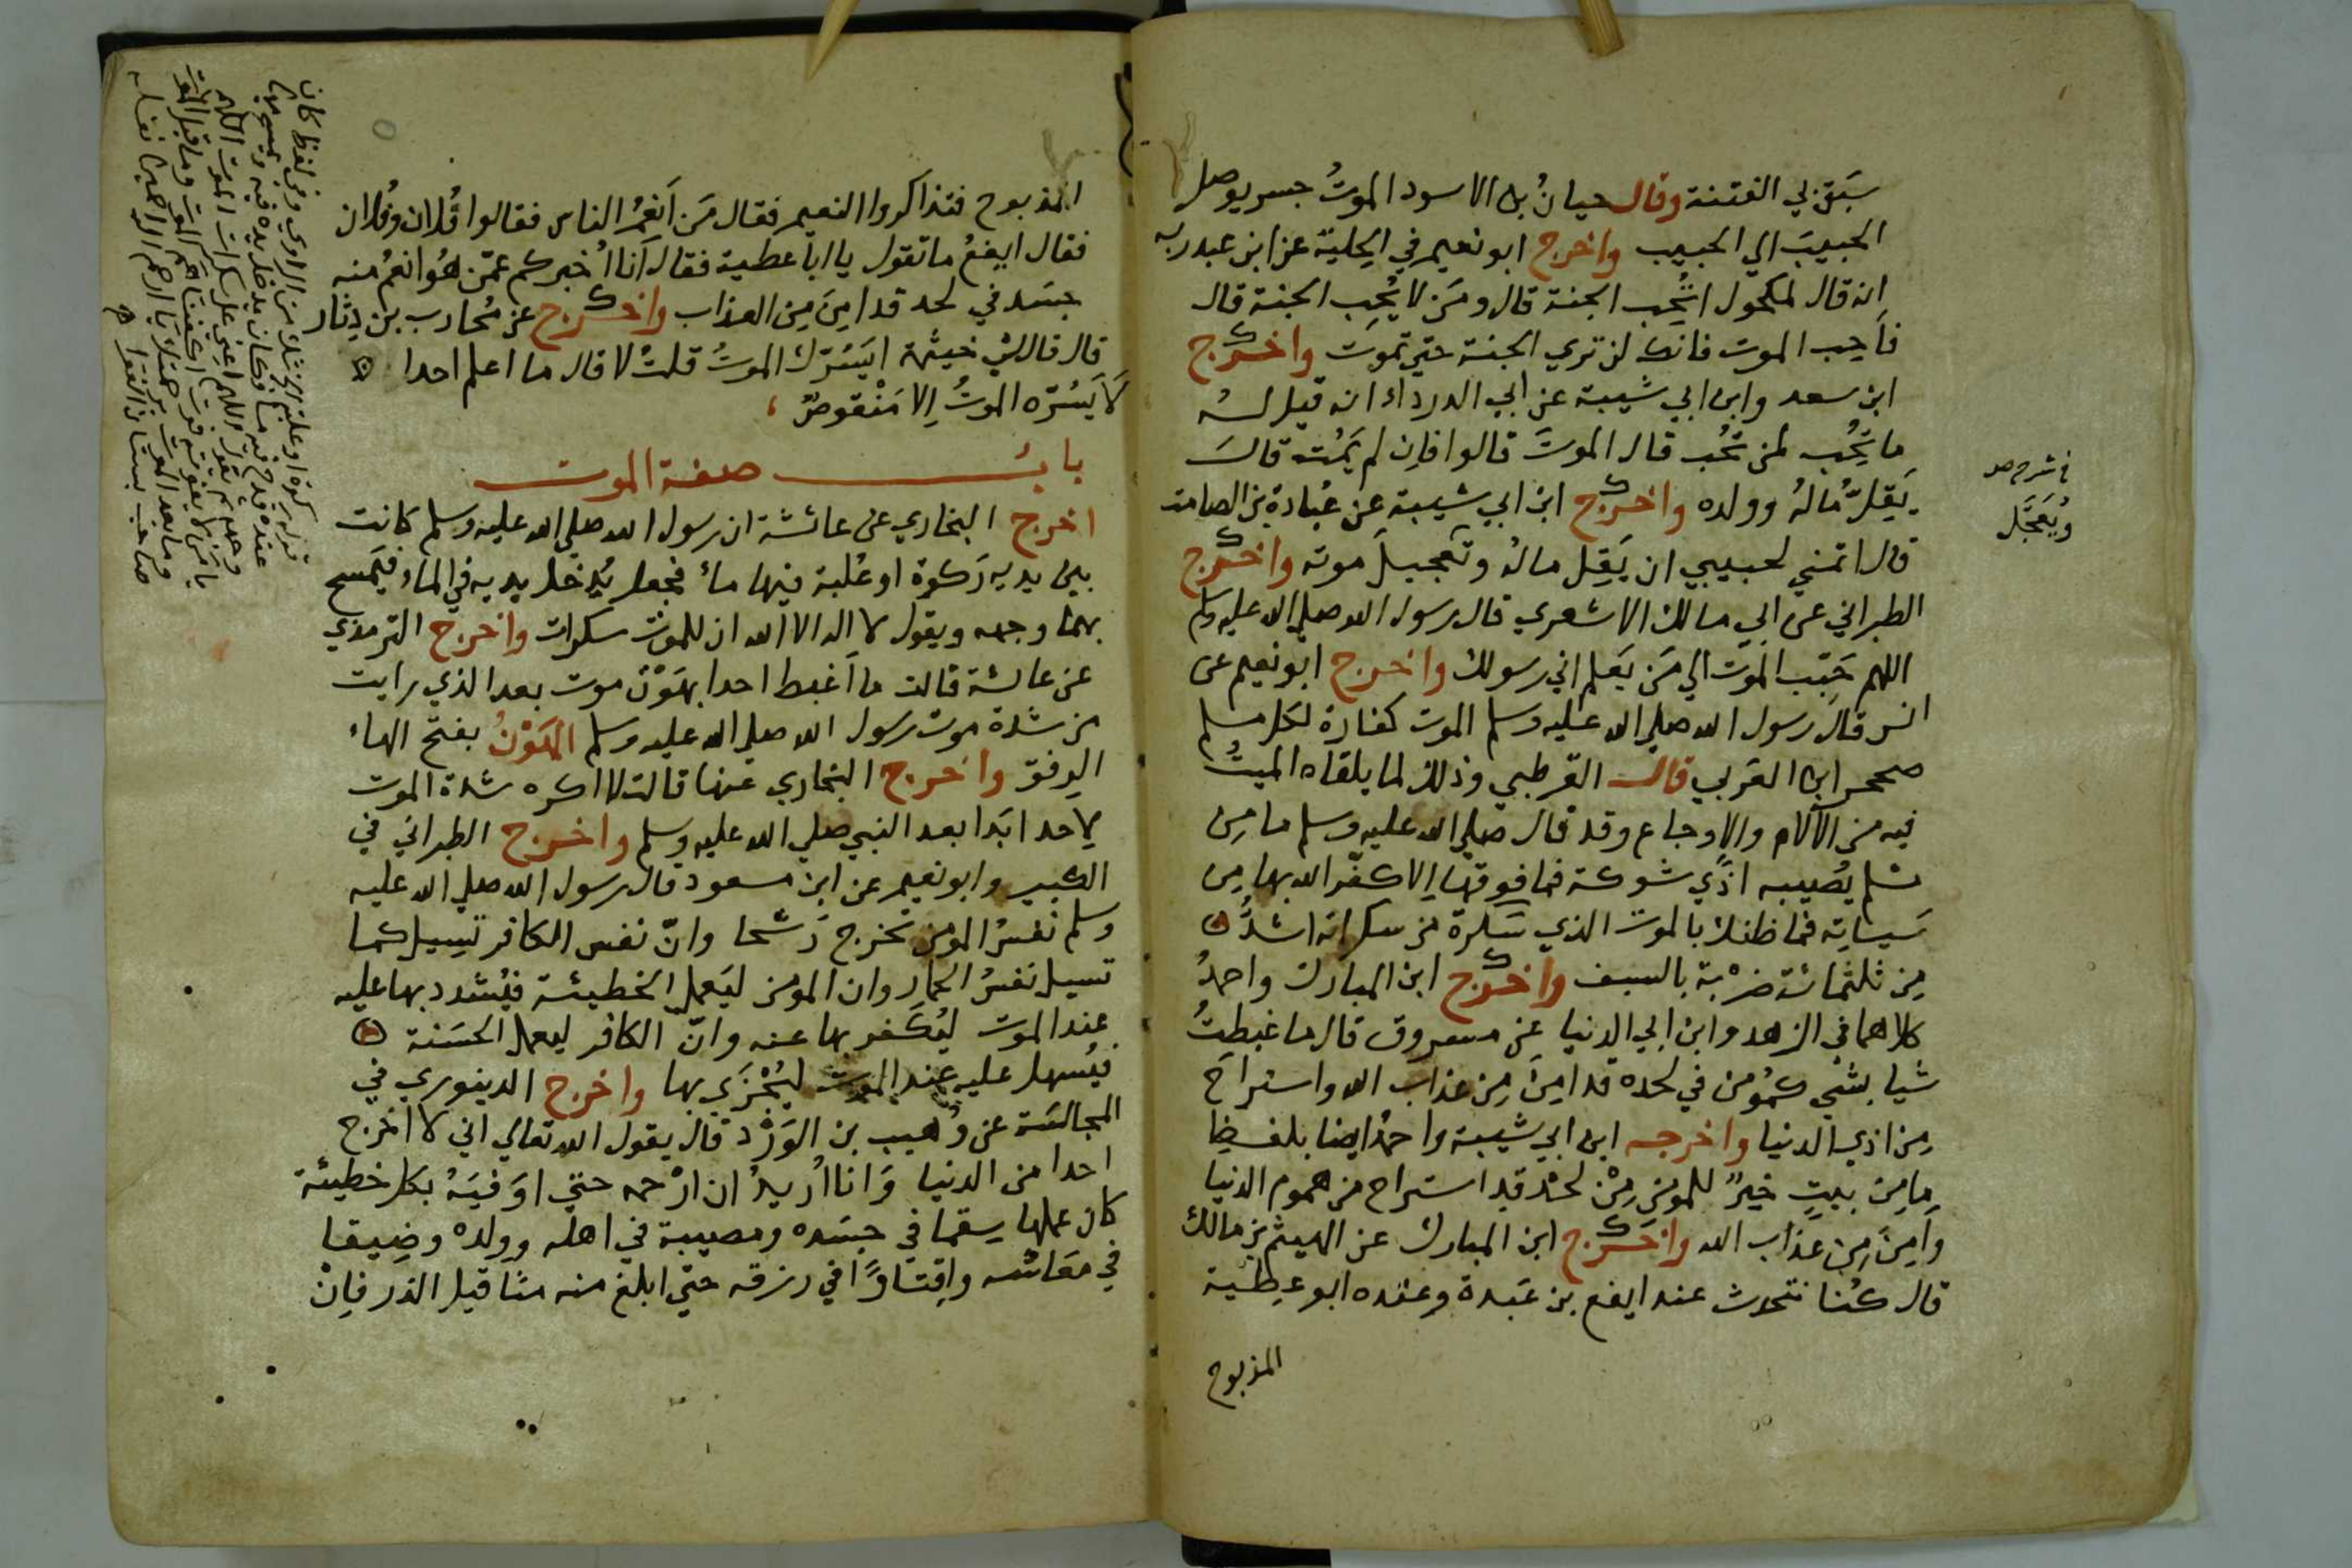 سَبَق لي الفتنة وقال حيانُ بن الاسود الموتُ جسر يوصل
الحبيبَ الي الحبيب واخرج ابو نعيم في الحِلية عن ابن عبد ربه
انه قال لمكحول اتُحِب الجنة قال ومَن لا يُحِب الجنة قال
فاَحِب الموت فانك لن تري الجنة حتي تموت واخرج
ابن سعد وابن ابي شيبة عن ابي الدرداء انه قيل له
ما تُحِب لمن تحُب قال الموتَ قالوا فاِن لم يَمُت قال
يَقِلّ مالهُ وولده واخرج ابن ابي شيبة عن عُبادة بن الصامت
قال اتمني لحبيبي ان يَقِل مالهُ وتعجيلَ موته واخرج
الطبراني عن ابي مالك الاشعري قال رسول الله صلي الله عليه وسلم
اللهم حَبّب الموت الي مَن يَعلم اني رسولك واخرج ابو نعيم عن
انس قال رسول الله صلي الله عليه وسلم الموت كفارة لكل مسلم
صححه ابن العَربي قال القرطبي وذلك لما يلقاه الميتُ
فيه من الآلام والاوجاع وقد قال صلي الله عليه وسلم ما مِن
مسلم يُصيبه اذًي شوكة فما فوقها اِلا كفّر الله بها مِن
سَيئاتِه فما ظنك بالموت الذي سَكرة من سكراته اشدُّ
مِن ثلثمائة ضَرْبة بالسيف واخرج ابن المبارك واحمدُ
كلاهما في الزهد وابن ابي الدنيا عن مسروق قال ما غبطتُ
شيا بشي كمُؤمن في لحده قد امِنَ مِن عذاب الله واستراح
مِن اذي الدنيا واخرجه ابن ابي شيبة واحمدُ ايضا بلفظِ
ما مِن بيتٍ خيرٌ للمومن مِن لحْد قد استراح من هموم الدنيا
واَمِنَ مِن عذاب الله واخرج ابن المبارك عن الهيثم بن مالك
قال كُنا نتحدث عند ايفع بن عَبدة وعنده ابو عطية
المذبوح
في شرح صد
ويُعَجَّل
المذبوح فتذاكروا النعيم فقال مَن اَنعَمُ الناس فقالوا فُلان وفُلان
فقال ايفعُ ما تقول يا ابا عطية فقال اَنا اُخبركم عمّن هُو انعمُ منه
جسَد في لحد قد امِنَ مِن العذاب واخرج عن مُحارب بن دِثار
قال قال لي خيثمة ايَسُرّك الموتُ قلت لا قال ما اعلم احدا
لا يَسُرّه الموتُ اِلا مَنْقوصٌ
بابُ صفة الموت
اخرج البخاري عن عائشة ان رسول الله صلي الله عليه وسلم كانت
بين يديه رَكوة او عُلبة فيها ماءٌ فجعل يُدخل يديه في الماء فيَمسح
بهما وجهه ويقول لا اله الا الله ان للموت سكرات واخرج الترمذي
عن عائشة قالت ما اَغبط احدا بهَوْن موت بعد الذي رايت
من شدة موت رسول الله صلي الله عليه وسلم الهَوْنُ بفتح الهاء
الرفق واخرج البخاري عنها قالت لا اكره شدة الموت
لاحد ابَدا بعد النبي صلي الله عليه وسلم واخرج الطبراني في
الكبير وابو نعيم عن ابن مسعود قال رسول الله صلي الله عليه
وسلم نفسُ المومن تخرج رَشحا وانّ نفس الكافر تسِيل كما
تسيل نفسُ الحمار وان المومن ليَعمل الخطيئة فيُشدد بها عليه
عند الموت ليُكَفر بها عنه وانّ الكافر ليعمل الحسَنة
فيُسهل عليه عند الموت ليُجْزَي بها واخرج الدينوري في
المجالسَة عن وُهيب بن الوَرْد قال يقول الله تعالي اني لا اخرج
احدا من الدنيا وَانا اُريدُ ان ارْحمه حتي اوَفيَهُ بكل خطيئة
كان عملها سقما في جسَده ومصيبة في اهله وولده وضِيقا
في مَعَاشه واِقتارًا في رزقه حتي ابلغ منه مثاقيل الذر فاِنْ
قوله ركوة او علبة الشك من الراوي وفي لفظ كان
عنده قدح فيه ماء فكان يدخل يده فيه ويمسح بها
وجهه ثم يقول اللهم اعني علي سكرات الموت اللهم